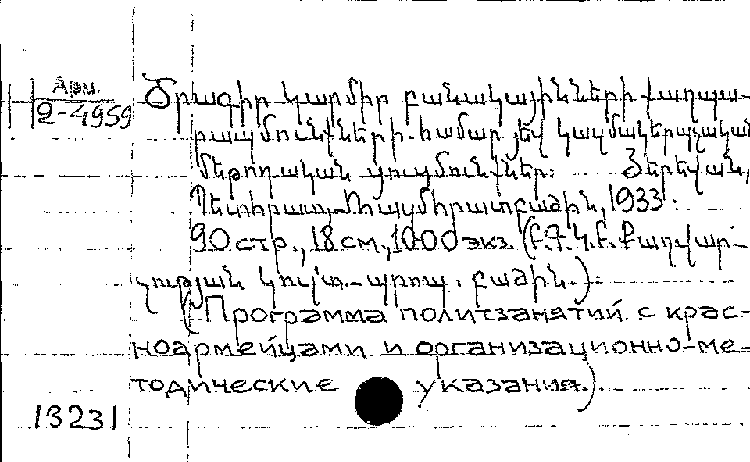 Арм.
2-4959
Ծրագիր կարմիր բանակայինների քաղպա-
րապմունքների համար յեվ կազմակերպչական
մեթոդական ցուցմունքներ. Յերեվան,
Պետհրատ-Ռազմհրատբաժին, 1933.
90 стр., 18 см., 1000 экз. (Բ.Գ.Կ.Բ. Քաղվար-
չության կուլտ.-պրոպ. բաժին.)
(Программа политзанятий с крас-
ноармейцами и организационно-ме-
тодические указания.)
13231